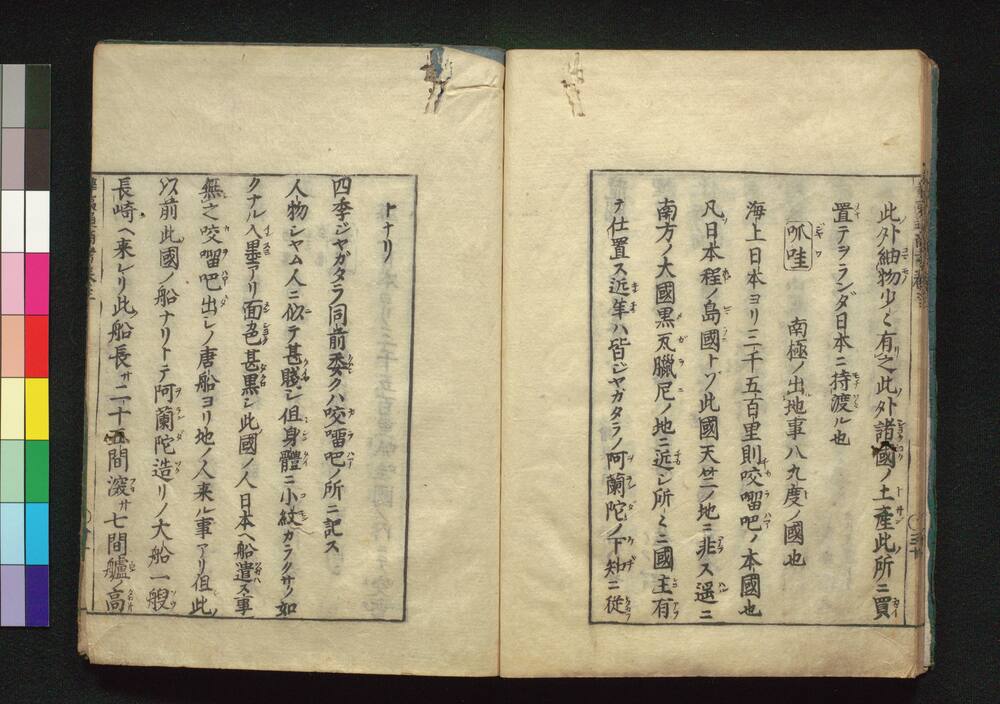 此外紬物少々有之此外諸國ノ土產此所ニ買
置テヲランダ日本ニ持渡ル也
呱哇 南極ノ出地事八九度ノ國也
海上日本ヨリ三千五百里則咬𠺕吧ノ本國也
凡日本程ノ島國トゾ此國天竺ノ地ニ非ス遥ニ
南方ノ大國黒瓦臘尼ノ地ニ近シ所々ニ國主有
テ仕置ス近年ハ皆ジヤガタラノ阿蘭陀ノ下知ニ從
トナリ
四季ジヤガタラ同前委クハ咬𠺕吧ノ所ニ記ス
人物シヤム人ニ似テ甚賤シ但身體ニ小紋カラクサノ如
クナル入墨アリ面色甚黒シ此國ノ人日本ヘ船遣ス事
無之咬𠺕吧出シノ唐船ヨリ地ノ人来ル事アリ但此
以前此國ノ船ナリトテ阿蘭陀造リノ大船一艘
長崎ヘ来レリ此船長サ二十五間深サ七間艫ノ高